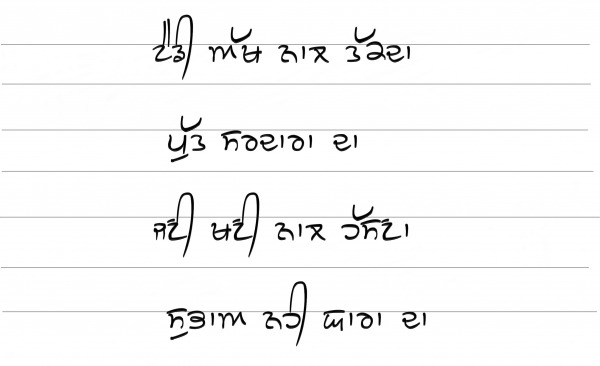 ਟੈਡੀ ਅੱਖ ਨਾਲ ਤੱਕਦਾ
ਪੁੱਤ ਸਰਦਾਰਾ ਦਾ
ਜਣੀ ਖਣੀ ਨਾਲ ਹੱਸਣਾ
ਸੁਭਾਅ ਨਹੀ ਯਾਰਾ ਦਾ